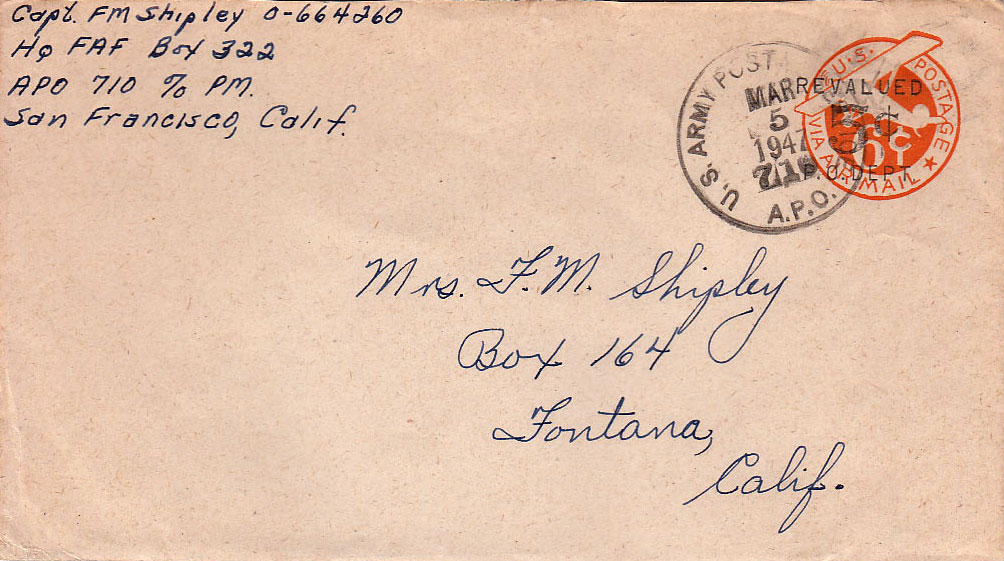 Capt. FM Shipley O-664260
Hq FAF Box 322
APO 710 % PM.
San Francisco, Calif.
U.S. ARMY POSTAL
MAR
5
1947
A.P.O.
U.S. POSTAGE
VIA AIR MAIL
REVALUED
5¢
6¢
P.O. DEPT.
Mrs. F.M. Shipley
Box 164
Fontana,
Calif.